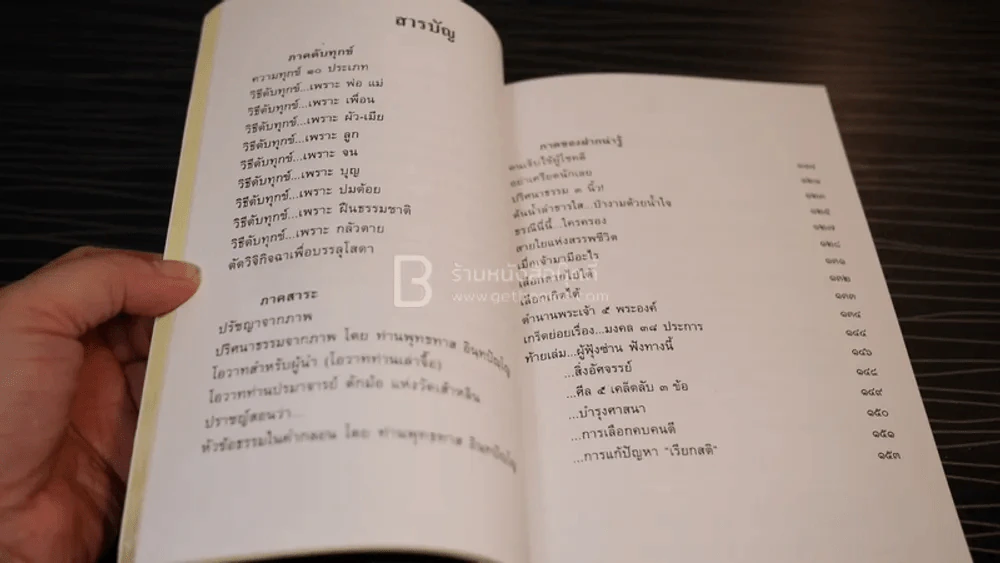 สารบัญ
ภาคดับทุกข์
ความทุกข์ ๑๐ ประเภท
วิธีดับทุกข์...เพราะ พ่อ แม่
วิธีดับทุกข์...เพราะ เพื่อน
วิธีดับทุกข์...เพราะ ผัว-เมีย
วิธีดับทุกข์...เพราะ ลูก
วิธีดับทุกข์...เพราะ จน
วิธีดับทุกข์...เพราะ บุญ
วิธีดับทุกข์...เพราะ ปมด้อย
วิธีดับทุกข์...เพราะ ฝืนธรรมชาติ
วิธีดับทุกข์...เพราะ กลัวตาย
ตัดวิจิกิจฉาเพื่อบรรลุโสดา
ภาคสาระ
ปรัชญาจากภาพ
ปริศนาธรรมจากภาพ โดย ท่านพุทธทาส อินทปัญโญ
โอวาทสำหรับผู้นำ (โอวาทท่านเล่าจื๊อ)
โอวาทท่านปรมาจารย์ ตั๊กม้อ แห่งวัดเส้าหลิน
ปราชญ์สอนว่า...
หัวข้อธรรมในคำกลอน โดย ท่านพุทธทาส อินทปัญโญ
ภาคของฝากน่ารู้
คนเจ็บไข้ผู้โชคดี
อย่าเครียดนักเลย ๑๒๑
ปริศนาธรรม ๓ นิ้ว! ๑๒๓
ต้นน้ำลำธารใส...ป่างามด้วยน้ำใจ ๑๒๕
ธรณีนี่นี้...ใครครอง ๑๒๗
สายใยแห่งสรรพชีวิต ๑๒๘
เมื่อเจ้ามามีอะไร ๑๓๑
เลือกตายไม่ได้ ๑๓๒
เลือกเกิดได้ ๑๓๓
ตำนานพระเจ้า ๕ พระองค์ ๑๓๔
เกร็ดย่อยเรื่อง...มงคล ๓๘ ประการ ๑๔๔
ท้ายเล่ม...ผู้ฟุ้งซ่าน ฟังทางนี้ ๑๔๖
...สิ่งอัศจรรย์ ๑๔๘
...ศีล ๕ เคล็ดลับ ๓ ข้อ ๑๔๙
...บำรุงศาสนา ๑๕๐
...การเลือกคบคนดี ๑๕๑
...การแก้ปัญหา "เรียกสติ" ๑๕๓